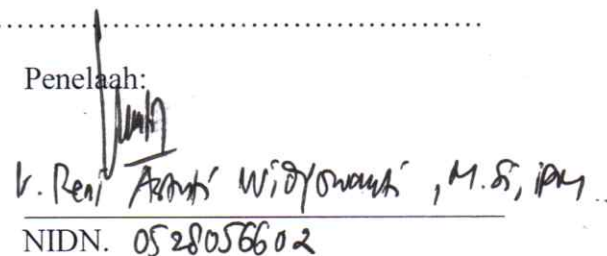 Penelaah:
Ir. Reni Astuti Widyowanti, M.Si, IPM
NIDN. 0528056602